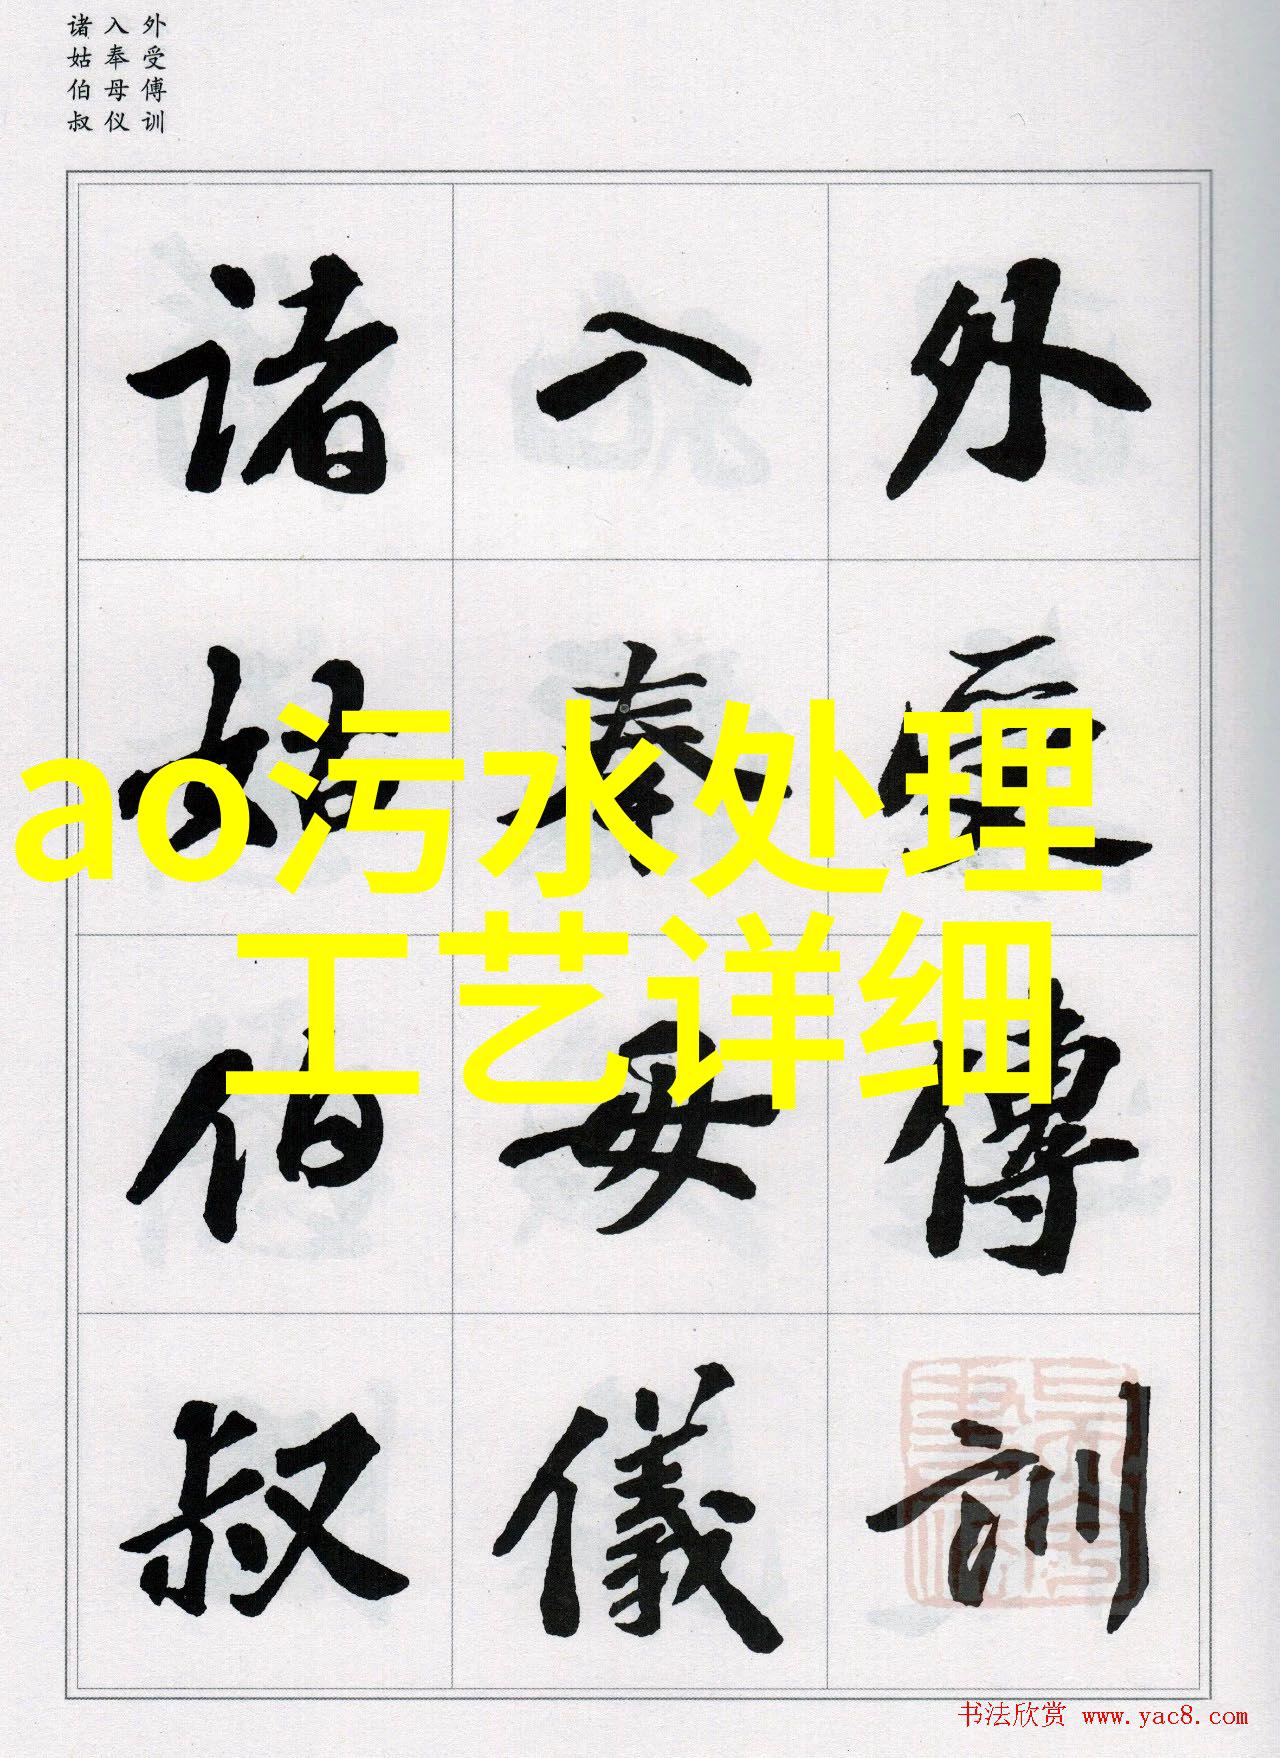 外受傅训
入奉母仪
诸姑伯叔
外受傅訓
入奉母儀
诸姑伯叔
ao污水处理
工艺详细
书法欣赏 www.yac8.com